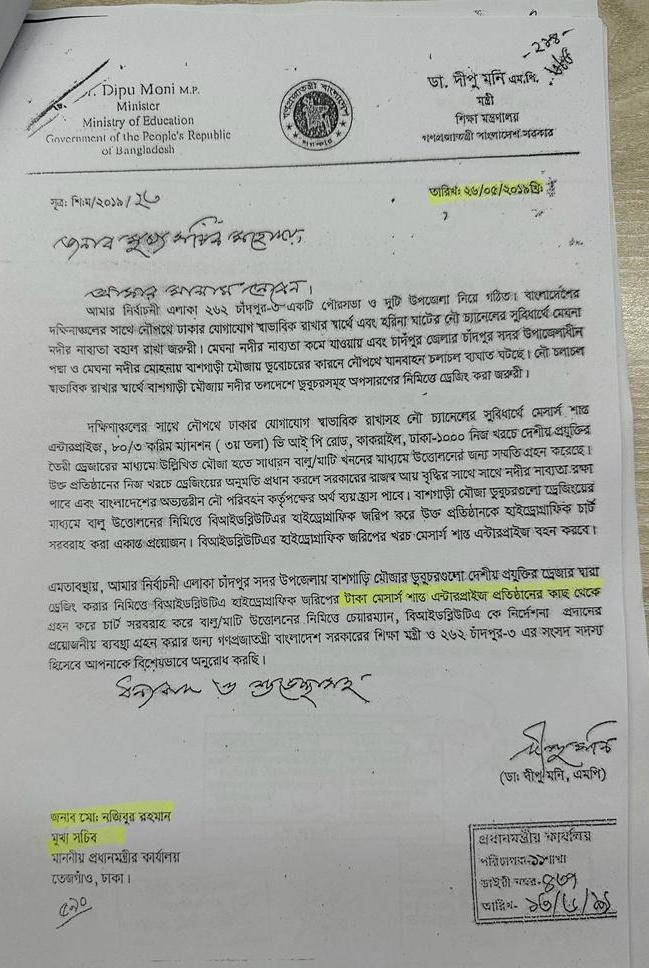 Dipu Moni M.P.
Minister
Ministry of Education
Government of the People's Republic
of Bangladesh
ডা. দীপু মনি এম.পি.
মন্ত্রী
শিক্ষা মন্ত্রণালয়
গণপ্রজাতন্ত্রী বাংলাদেশ সরকার
সূত্র: শিঃম/২০১৯/
তারিখ: ২৬/০৫/২০১৯খ্রি:
জনাব মুখ্য সচিব মহোদয়,
আমার সালাম নেবেন।
আমার নির্বাচনী এলাকা ২৬২ চাঁদপুর-৩ একটি পৌরসভা ও দুটি উপজেলা নিয়ে গঠিত। বাংলাদেশের
দক্ষিনাঞ্চলের সাথে নৌপথে ঢাকার যোগাযোগ স্বাভাবিক রাখার স্বার্থে এবং হরিনা ঘাটের নৌ চ্যানেলের সুবিধার্থে মেঘনা
নদীর নাব্যতা বহাল রাখা জরুরী। মেঘনা নদীর নাব্যতা কমে যাওয়ায় এবং চাঁদপুর জেলার চাঁদপুর সদর উপজেলাধীন
পদ্মা ও মেঘনা নদীর মোহনায় বাশগাড়ী মৌজায় ডুবোচরের কারনে নৌপথে যানবাহন চলাচল ব্যঘাত ঘটছে। নৌ চলাচল
স্বাভাবিক রাখার স্বার্থে বাশগাড়ী মৌজায় নদীর তলদেশে ডুবুচরসমূহ অপসারণের নিমিত্তে ড্রেজিং করা জরুরী।
দক্ষিনাঞ্চলের সাথে নৌপথে ঢাকার যোগাযোগ স্বাভাবিক রাখাসহ নৌ চ্যানেলের সুবিধার্থে মেসার্স শান্ত
এন্টারপ্রাইজ, ৮০/৩ করিম ম্যানশন ( ৩য় তলা) ভি আই পি রোড, কাকরাইল, ঢাকা-১০০০ নিজ খরচে দেশীয় প্রযুক্তির
তৈরী ড্রেজারের মাধ্যমে উল্লিখিত মৌজা হতে সাধারন বালু/মাটি খননের মাধ্যমে উত্তোলনের জন্য সম্মতি গ্রহন করেছে।
উক্ত প্রতিষ্ঠানের নিজ খরচে ড্রেজিংয়ের অনুমতি প্রধান করলে সরকারের রাজস্ব আয় বৃদ্ধির সাথে সাথে নদীর নাব্যতা রক্ষা
পাবে এবং বাংলাদেশের অভ্যন্তরীন নৌ পরিবহন কর্তৃপক্ষের অর্থ ব্যয় হ্রাস পাবে। বাশগাড়ী মৌজা ডুবুচরগুলো ড্রেজিংয়ের
মাধ্যমে বালু উত্তোলনের নিমিত্তে বিআইডব্লিউটিএর হাইড্রোগ্রাফিক জরিপ করে উক্ত প্রতিষ্ঠানকে হাইড্রোগ্রাফিক চার্ট
সরবরাহ করা একান্ত প্রয়োজন। বিআইডব্লিউটিএর হাইড্রোগ্রাফিক জরিপের খরচ মেসার্স শান্ত এন্টারপ্রাইজ বহন করবে।
এমতাবস্থায়, আমার নির্বাচনী এলাকা চাঁদপুর সদর উপজেলায় বাশগাড়ি মৌজার ডুবুচরগুলো দেশীয় প্রযুক্তির ড্রেজার দ্বারা
ড্রেজিং করার নিমিত্তে বিআইডব্লিউটিএ হাইড্রোগ্রাফিক জরিপের টাকা মেসার্স শান্ত এন্টারপ্রাইজ প্রতিষ্ঠানের কাছ থেকে
গ্রহন করে চার্ট সরবরাহ করে বালু/মাটি উত্তোলনের নিমিত্তে চেয়ারম্যান, বিআইডব্লিউটিএ কে নির্দেশনা প্রদানের
প্রয়োজনীয় ব্যবস্থা গ্রহন করার জন্য গণপ্রজাতন্ত্রী বাংলাদেশ সরকারের শিক্ষা মন্ত্রী ও ২৬২ চাঁদপুর-৩ এর সংসদ সদস্য
হিসেবে আপনাকে বিশেষভাবে অনুরোধ করছি।
ধন্যবাদ ও শুভেচ্ছাসহ
দীপু মনি
(ডা: দীপু মনি, এমপি)
জনাব মো: নজিবুর রহমান
মুখ্য সচিব
মাননীয় প্রধানমন্ত্রীর কার্যালয়
তেজগাঁও, ঢাকা।
প্রধানমন্ত্রীর কার্যালয়
পরিচালক-১১শাখা
ডাইরী নম্বর-
তারিখ-